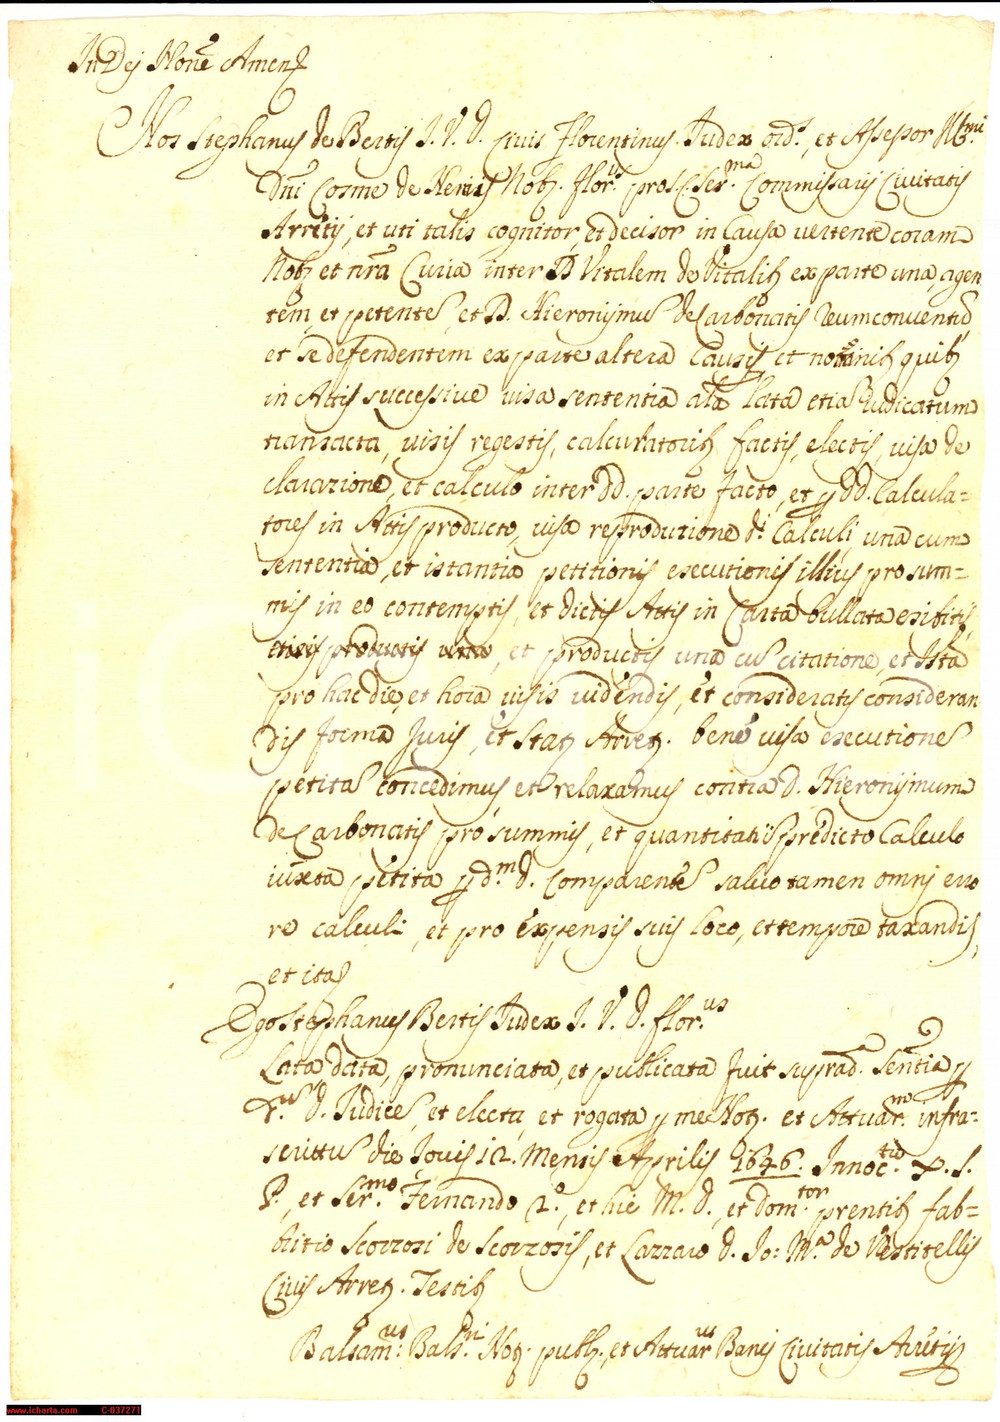 In Dej Noñe Amen
Nos Stephanus de Bertis I. V. D. Civis Florentinus Iudex ord.s, et Assessor Ill.mi
Dñi Cosme de Nob. flor. pro S. Ser.ma Commissarij Civitatis
Arretij, et uti talis cognitor, et decisor in Causa vertente coram
Nob et nrã Curia inter D Vitalem de Vitalib ex parte una, agen
tem, et petente, et D. Hieronijmus de Carbonatis Reum conventũ,
et se defendentem ex parte altera Causis et quib
in Actis successive visa sententia alã lata etiã Iudicatum
transacta, visis regestis, calculatorib factis, electis, visa de
claratione, et calculo inter DD. parte facto, et p DD. Calcula=
tores in Actis producto, visa reproduzione d.i Calculi, una cum
sententia, et istantia petitionis executionis illius pro sum=
mis in eo contemptis, et dictis Actis in Carta bullata exibitis,
productis, et productis una cũ citatione, et Istã
pro hac die, et hora visis videndis, et consideratis consideran
dis forma Juris, et Stat Arret. bene visa executione
petita concedimus, et relaxamus contra D. Hieronijmum
de Carbonatis pro summis, et quantitatis predicto Calculo
iuxta petita p d.m d. Comparente salvo tamen omnj erro
re calculi, et pro expensis suis loco, et tempore taxandis,
et ita
Ego Stephanus Bertis Iudex I. V. D. flor.us
Lata data, pronunciata, et publicata fuit suprad.a Sentia p
d. Iudice, et lecta, et rogata p me Not. et Attuar.m infra=
scrittũ die Iovis 12. Mensis Aprilis 1646. Innoc.tio X. S.
P., et Ser.mo Fernando 2.o, et hic M. D., et Dom.tor prentib fab=
britio Scorzosi de Scorzosis, et Lazzaro d. Jo: M.a de Vestitellis
Civis Arret. Testib
Balsam.us: Bals.ni Not. publ., et Attuar.us Banij Civitatis Aretij
www.icharta.com C-037271